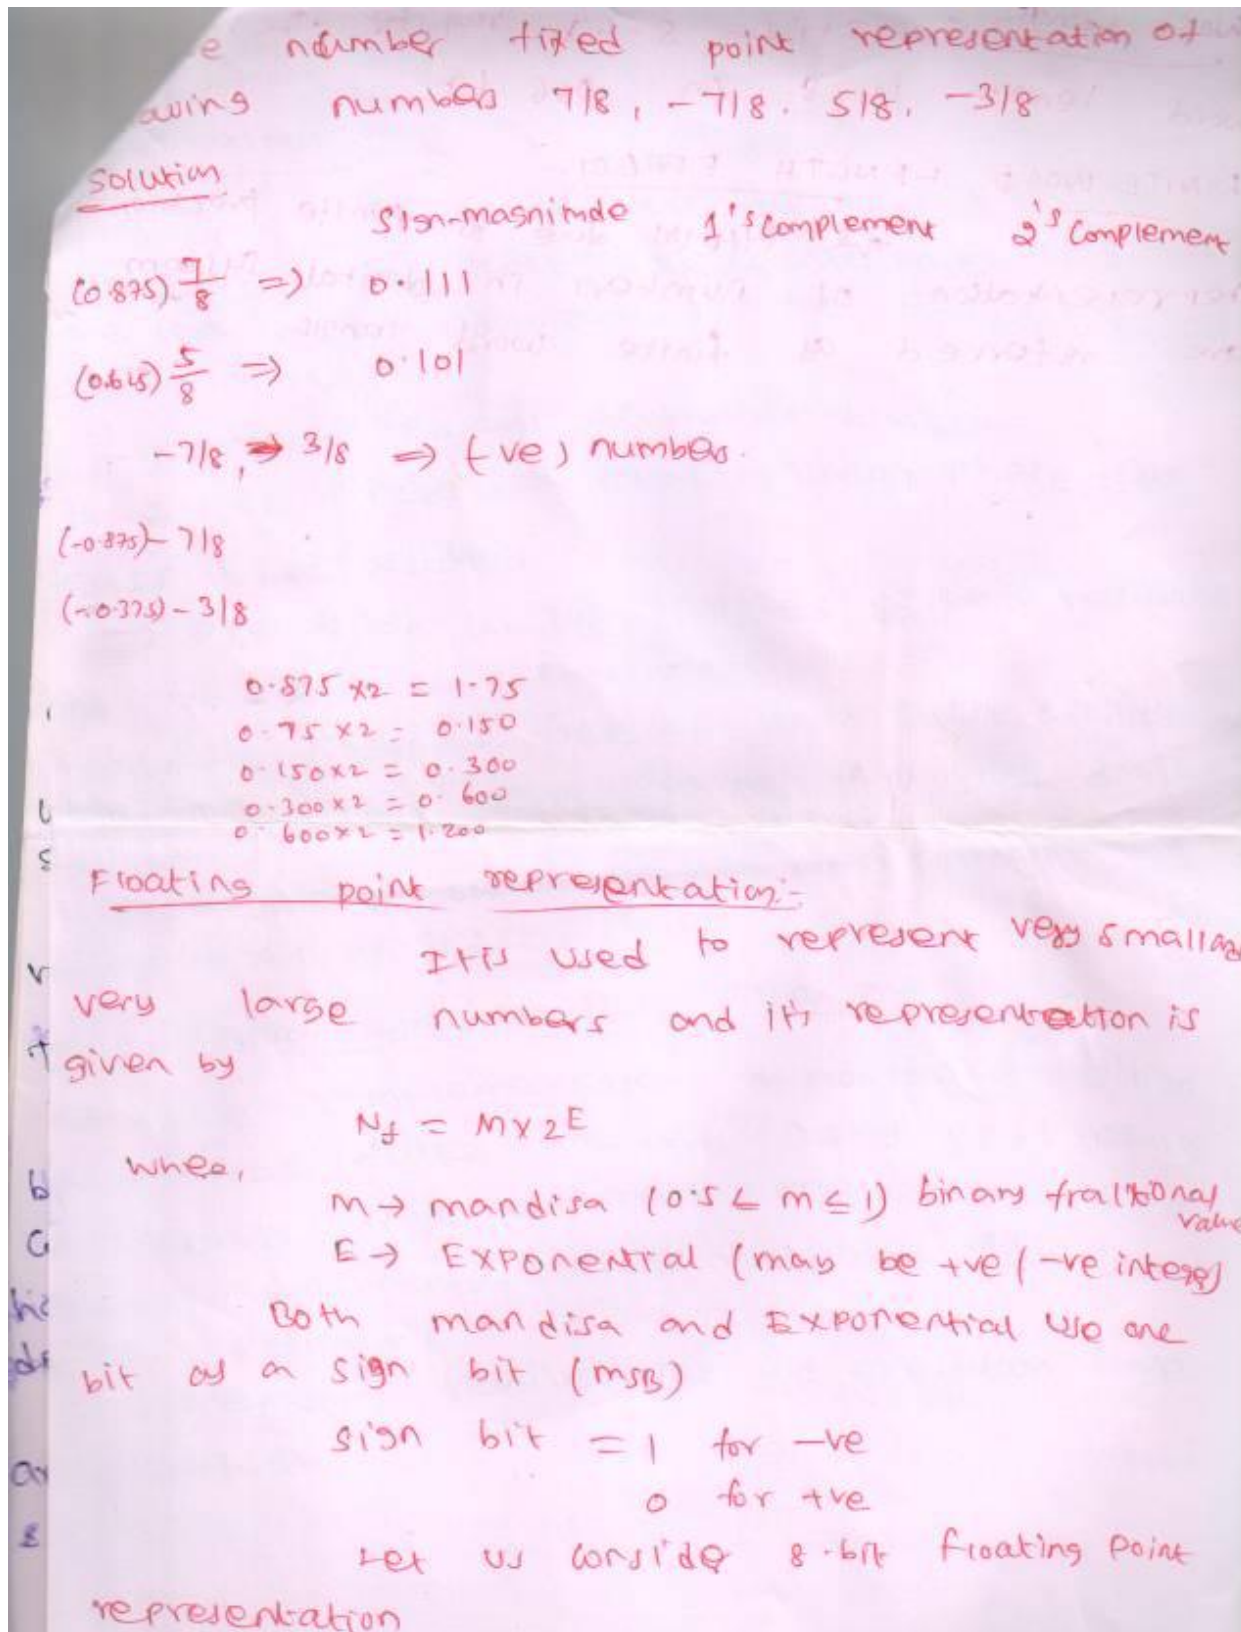 e number fixed point representation of
owing numbers 7/8, -7/8. 5/8. -3/8
Solution
Sign-magnitude 1's complement 2's complement
(0.875) 7/8 => 0.111
(0.625) 5/8 => 0.101
-7/8, 3/8 => (-ve) numbers.
(-0.875) - 7/8
(-0.375) - 3/8
0.875 x2 = 1.75
0.75 x2 = 0.150
0.150x2 = 0.300
0.300x2 = 0.600
0.600x2 = 1.200
Floating point representation:-
It is used to represent very small and
very large numbers and its representation is
given by
Nf = M x 2E
where,
M → mandisa (0.5 ≤ m ≤ 1) binary fractional value
E → Exponential (may be +ve / -ve integer)
Both mandisa and Exponential use one
bit as a sign bit (MSB)
sign bit = 1 for -ve
0 for +ve
Let us consider 8-bit floating point
representation